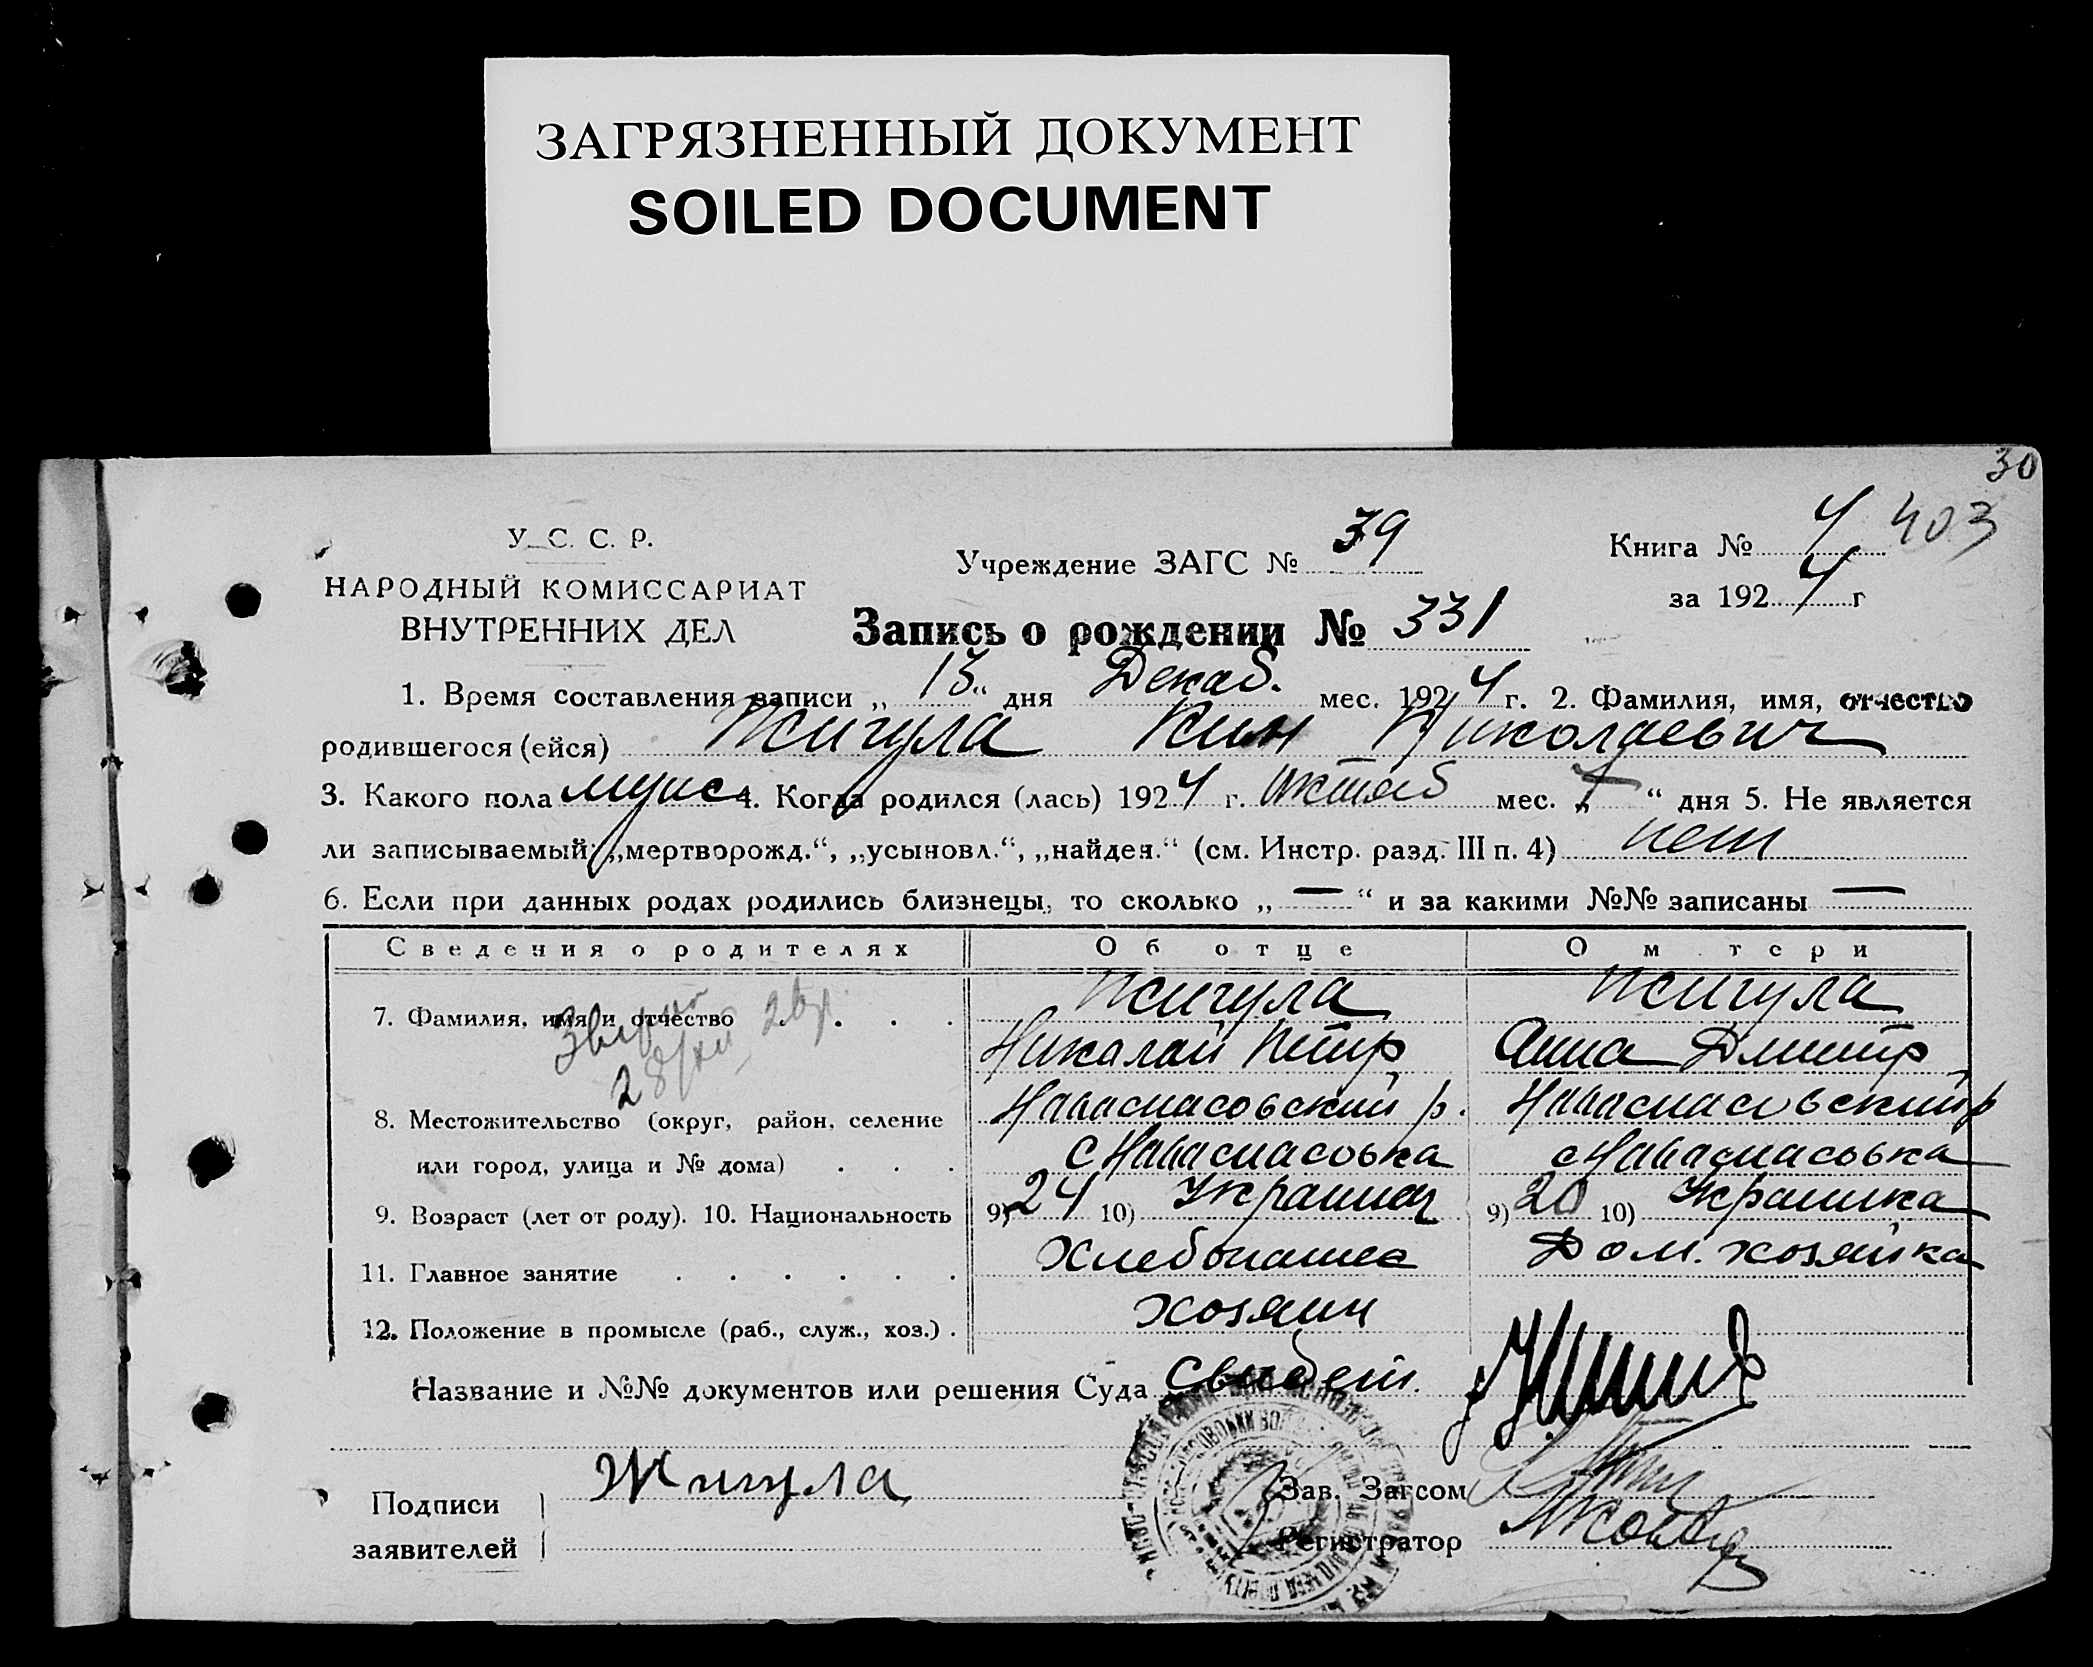 ЗАГРЯЗНЕННЫЙ ДОКУМЕНТ
SOILED DOCUMENT
30
У. С. С. Р.
НАРОДНЫЙ КОМИССАРИАТ
ВНУТРЕННИХ ДЕЛ
Учреждение ЗАГС № 39
Книга № 4 403
за 1924 г
Запись о рождении № 331
1. Время составления записи „13“ дня Декаб. мес. 1924 г. 2. Фамилия, имя, отчество
родившегося (ейся) Жигула Ким Николаевич
3. Какого пола мужс 4. Когда родился (лась) 1924 г. Октяб мес. „7“ дня 5. Не является
ли записываемый: „мертворожд.“, „усыновл.“, „найден.“ (см. Инстр. разд. III п. 4) нет
6. Если при данных родах родились близнецы, то сколько „—“ и за какими №№ записаны —
Сведения о родителях Об отце О м тери
7. Фамилия, имя и отчество Жигула Жигула
Николай Петр Анна Дмитр
28/XII
8. Местожительство (округ, район, селение Новоспасовский р. Новоспасовский р
или город, улица и № дома) с Новоспасовка с Новоспасовка
9. Возраст (лет от роду). 10. Национальность 9) 24 10) Украинец 9) 20 10) Украинка
11. Главное занятие Хлебопашец Дом. хозяйка
12. Положение в промысле (раб., служ., хоз.) . хозяин
Название и №№ документов или решения Суда свидет.
Подписи Жигула Зав. Загсом
заявителей Регистратор